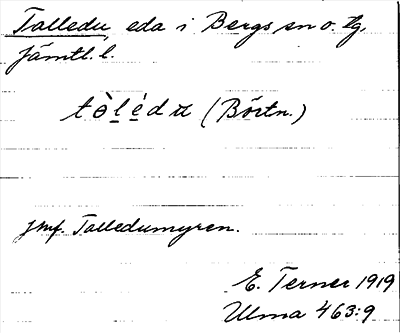 Talledu, eda i Bergs sn o. tg.
Jämtl. l.
(Börtn.)
Jmf. Talledumyren.
E. Terner 1919
Ulma 463:9